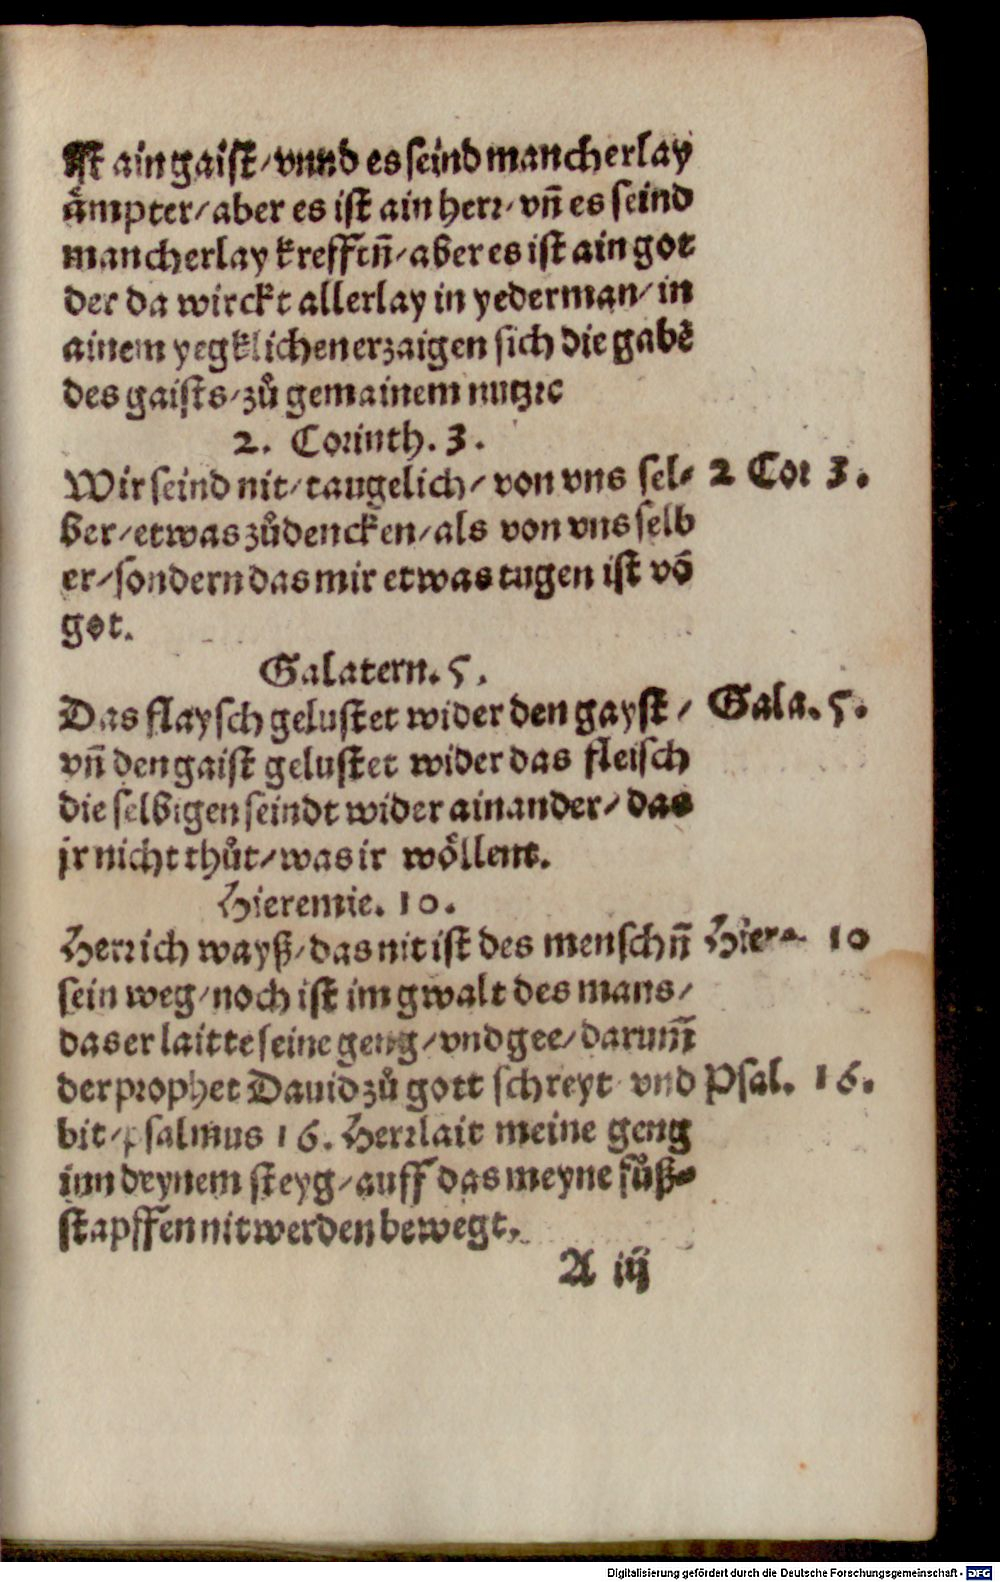 Ist ain gaist/ vnnd es seind mancherlay
ămpter/ aber es ist ain herr/ vñ es seind
mancherlay krefftñ/ aber es ist ain got
der da wirckt allerlay in yederman/ in
ainem yegklichen erzaigen sich die gabẽ
des gaists/ zů gemainem nutz ꝛc
2. Corinth. 3.
Wir seind nit/ taugelich/ von vns sel⸗
2 Cor 3.
ber/ etwas zůdencken/ als von vns selb
er/ sondern das mir etwas tugen ist võ
got.
Galatern. 5.
Das flaysch gelustet wider den gayst/
Gala. 5.
vñ den gaist gelustet wider das fleisch
die selbigen seindt wider ainander/ das
jr nicht thůt/ was ir wöllent.
Hieremie. 10.
Herr ich wayß/ das nit ist des menschñ
Hiere 10
sein weg/ noch ist im gwalt des mans/
das er laitte seine geng/ vnd gee/ darum̃
der prophet Dauid zů gott schreyt vnd
Psal. 16.
bit/ psalmus 16. Herr lait meine geng
inn deynem steyg/ auff das meyne fůß⸗
stapffen nit werden bewegt.
A iij
Digitalisierung gefördert durch die Deutsche Forschungsgemeinschaft - DFG